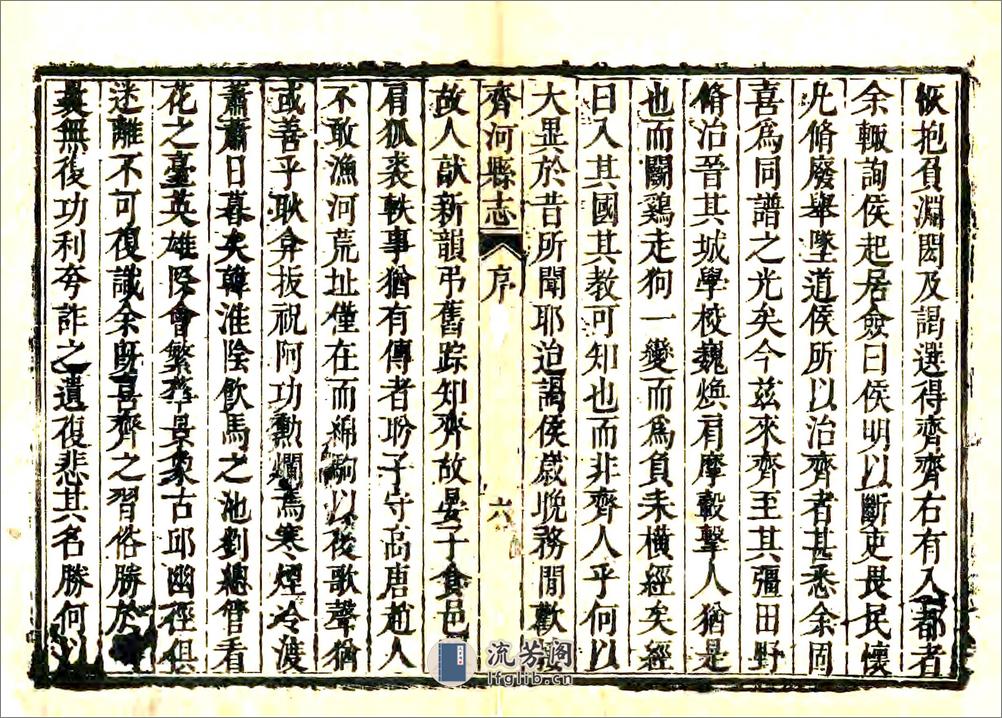 恢抱負淵閎及謁選得齊齊右有入都者
余輙詢侯起居僉曰侯明以斷吏畏民懷
凢脩廢舉墜道侯所以治齊者甚悉余固
喜爲同譜之光矣今茲來齊至其彊田野
脩治晉其城學校巍煥肩摩轂擊人猶是
也而鬭鷄走狗一變而爲負耒橫經矣經
曰入其國其教可知也而非齊人乎何以
大異於昔所聞耶迨謁侯歲晚務閒歡
齊河縣志 序 六
故人猷新韻弔舊踪知齊故晏子食邑
肩狐裘軼事猶有傳者盻子守高唐趙人
不敢漁河荒址僅在而綿駒以後歌聲猶
或善乎耿弇拔祝阿功勲爛焉寒煙冷渡
蕭蕭日暮矣韓淮陰飲馬之池劉總管看
花之臺英雄際會繁華景象古邱幽徑俱
迷離不可復識余旣喜齊之習俗勝於
無復功利夸詐之遺復悲其名勝何以
流芳阁
lfglib.cn